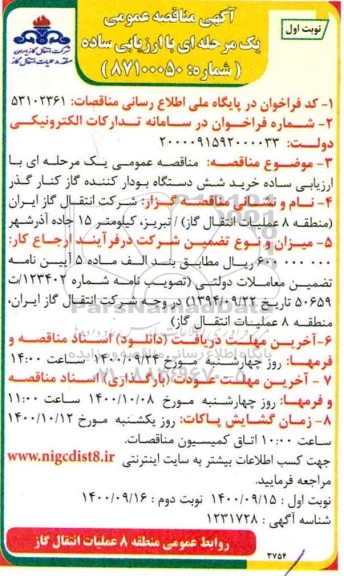 نوبت اول
آگهی مناقصه عمومی
یک مرحله ای با ارزیابی ساده
(شماره: ۸۷۱۰۰۰۵۰)
شرکت انتقال گاز ایران
منطقه ۸ عملیات انتقال گاز
۱- کد فراخوان در پایگاه ملی اطلاع رسانی مناقصات: ۵۳۱۰۲۳۶۱
۲- شماره فراخوان در سامانه تدارکات الکترونیکی
دولت: ۲۰۰۰۰۹۱۵۹۲۰۰۰۰۳۳
۳- موضوع مناقصه: مناقصه عمومی یک مرحله ای با
ارزیابی ساده خرید شش دستگاه بودار کننده گاز کنار گذر
۴- نام و نشانی مناقصه گزار: شرکت انتقال گاز ایران
(منطقه ۸ عملیات انتقال گاز) / تبریز، کیلومتر ۱۵ جاده آذرشهر
۵- میزان و نوع تضمین شرکت در فرآیند ارجاع کار:
ریال مطابق بند الف ماده ۵ آیین نامه
تضمین معاملات دولتی (تصویب نامه شماره ۱۲۳۴۰۲/ت
۵۰۶۵۹ تاریخ ۱۳۹۴/۰۹/۲۲) در وجه شرکت انتقال گاز ایران،
منطقه ۸ عملیات انتقال گاز)
۶-آخرین مهلت دریافت (دانلود) اسناد مناقصه و
فرمها: روز چهارشنبه مورخ ۱۴۰۰/۰۹/۲۴ ساعت ۱۴:۰۰
۷- آخرین مهلت عودت (بارگذاری) اسناد مناقصه
و فرمها: روز چهارشنبه مورخ ۱۴۰۰/۱۰/۰۸ ساعت ۱۱:۰۰
۸- زمان گشایش پاکات: روز یکشنبه مورخ ۱۴۰۰/۱۰/۱۲
ساعت ۱۰:۰۰ اتاق کمیسیون مناقصات.
جهت کسب اطلاعات بیشتر به سایت اینترنتی www.nigcdist8.ir
مراجعه فرمایید.
نوبت اول : ۱۴۰۰/۰۹/۱۵ نوبت دوم : ۱۴۰۰/۰۹/۱۶
شناسه آگهی : ۱۲۳۱۷۲۸
روابط عمومی منطقه ۸ عملیات انتقال گاز
۳۷۵۴